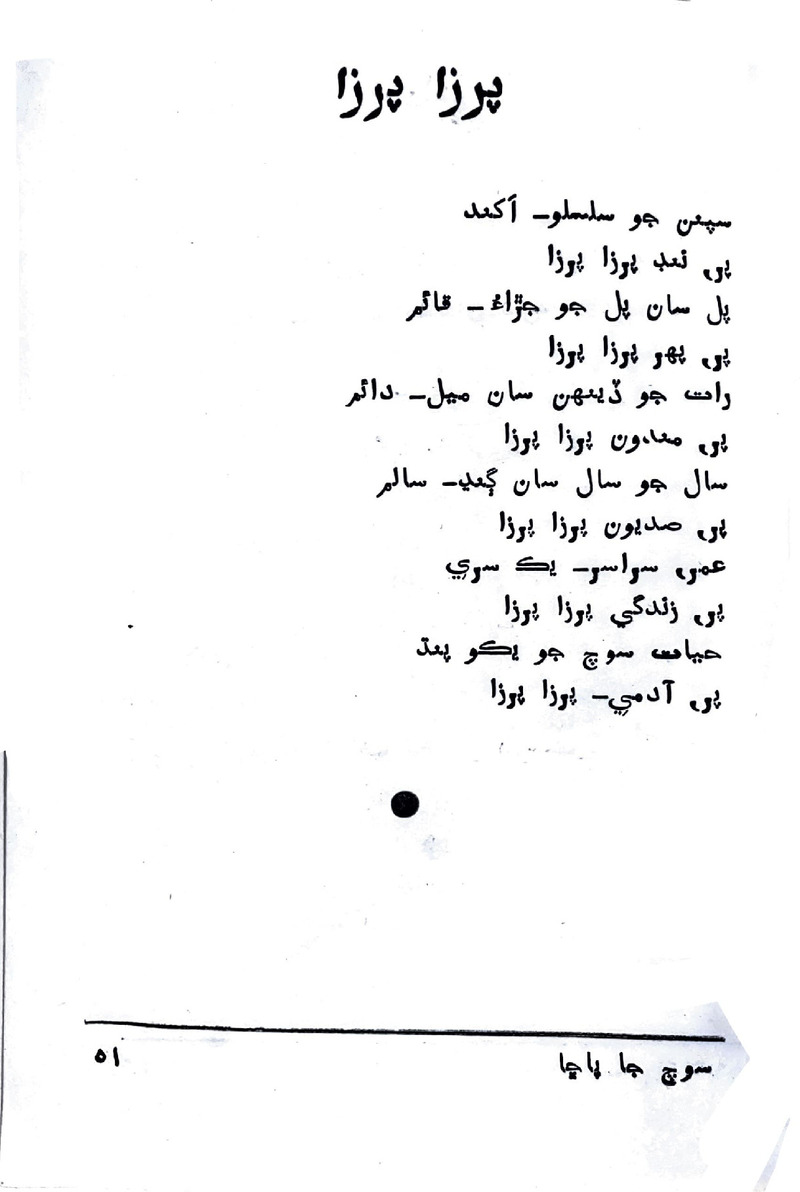 پرزا پرزا
سپنن جو سلسلو۔ اکنڊ
پر ننڊ پرزا پرزا
پل سان پل جو جڙاءُ۔ قائم
پر پهر پرزا پرزا
رات جو ڏينهن سان ميل۔ دائم
پر مندون پرزا پرزا
سال جو سال سان ڳنڍ۔ سالم
پر صديون پرزا پرزا
عمر سراسر۔ يڪ سري
پر زندگي پرزا پرزا
حيات سوچ جو يڪو پنڌ
پر آدمي۔ پرزا پرزا
سوچ جا پاڇا
٥١